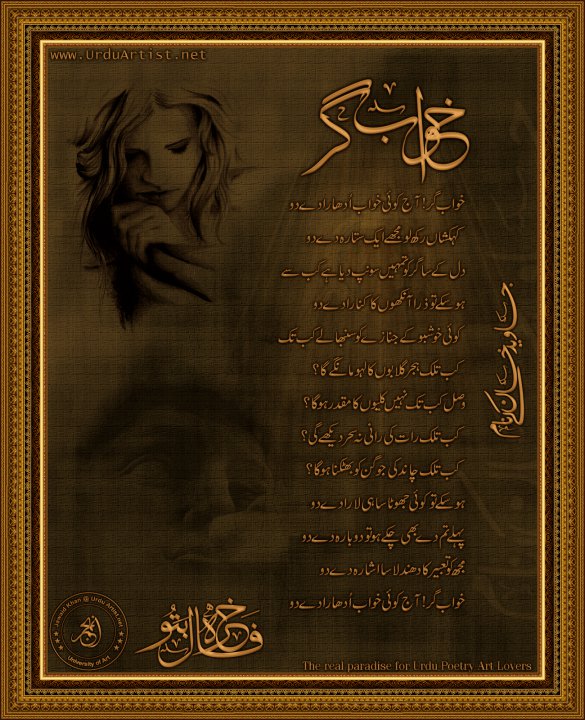 www.UrduArtist.net
خواب گر
خواب گر! آج کوئی خواب اُدھارا دے دو
کہکشاں رکھ لو مجھے ایک ستارہ دے دو
دل کے ساگر کو تمہیں سونپ دیا ہے کب سے
ہو سکے تو ذرا آنکھوں کا کنارا دے دو
کوئی خوشبو کے جنازے کو سنبھالے کب تک
کب تلک ہجر گلابوں کا لہو مانگے گا؟
وصل کب تک نہیں کلیوں کا مقدر ہوگا؟
کب تلک رات کی رانی نہ سحر دیکھے گی؟
کب تلک چاند کی جوگن کو بھٹکنا ہوگا؟
ہو سکے تو کوئی جھوٹا سا ہی لارا دے دو
پہلے تم دے بھی چکے ہو تو دوبارہ دے دو
مجھ کو تعبیر کا دھندلا سا اشارہ دے دو
خواب گر! آج کوئی خواب اُدھارا دے دو
جاوید خان کے نام
فاخرہ بتول
Javaid Khan @ Urdu Artist.net
University of Art
The real paradise for Urdu Poetry Art Lovers